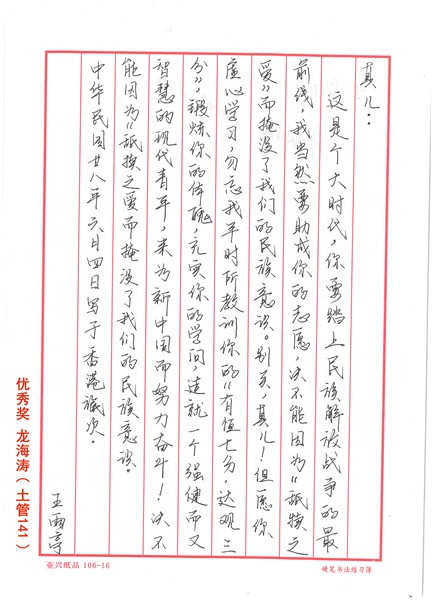 真儿：
这是个大时代，你要踏上民族解放战争的最
前线，我当然要助成你的志愿，决不能因为“舐犊之
爱”而掩没了我们的民族意识。别矣，真儿！但愿你
虚心学习，勿忘我平时所教训你的“有恒七分，达观三
分”，锻炼你的体魄，充实你的学问，造就一个强健而又
智慧的现代青年，来为新中国而努力奋斗！决不
能因为“舐犊之爱而掩没了我们的民族意识。
中华民国廿八年六月四日写于香港旅次。
王雨亭
优秀奖 龙海涛（土管141）
亚兴纸品 106-16
硬笔书法练习簿